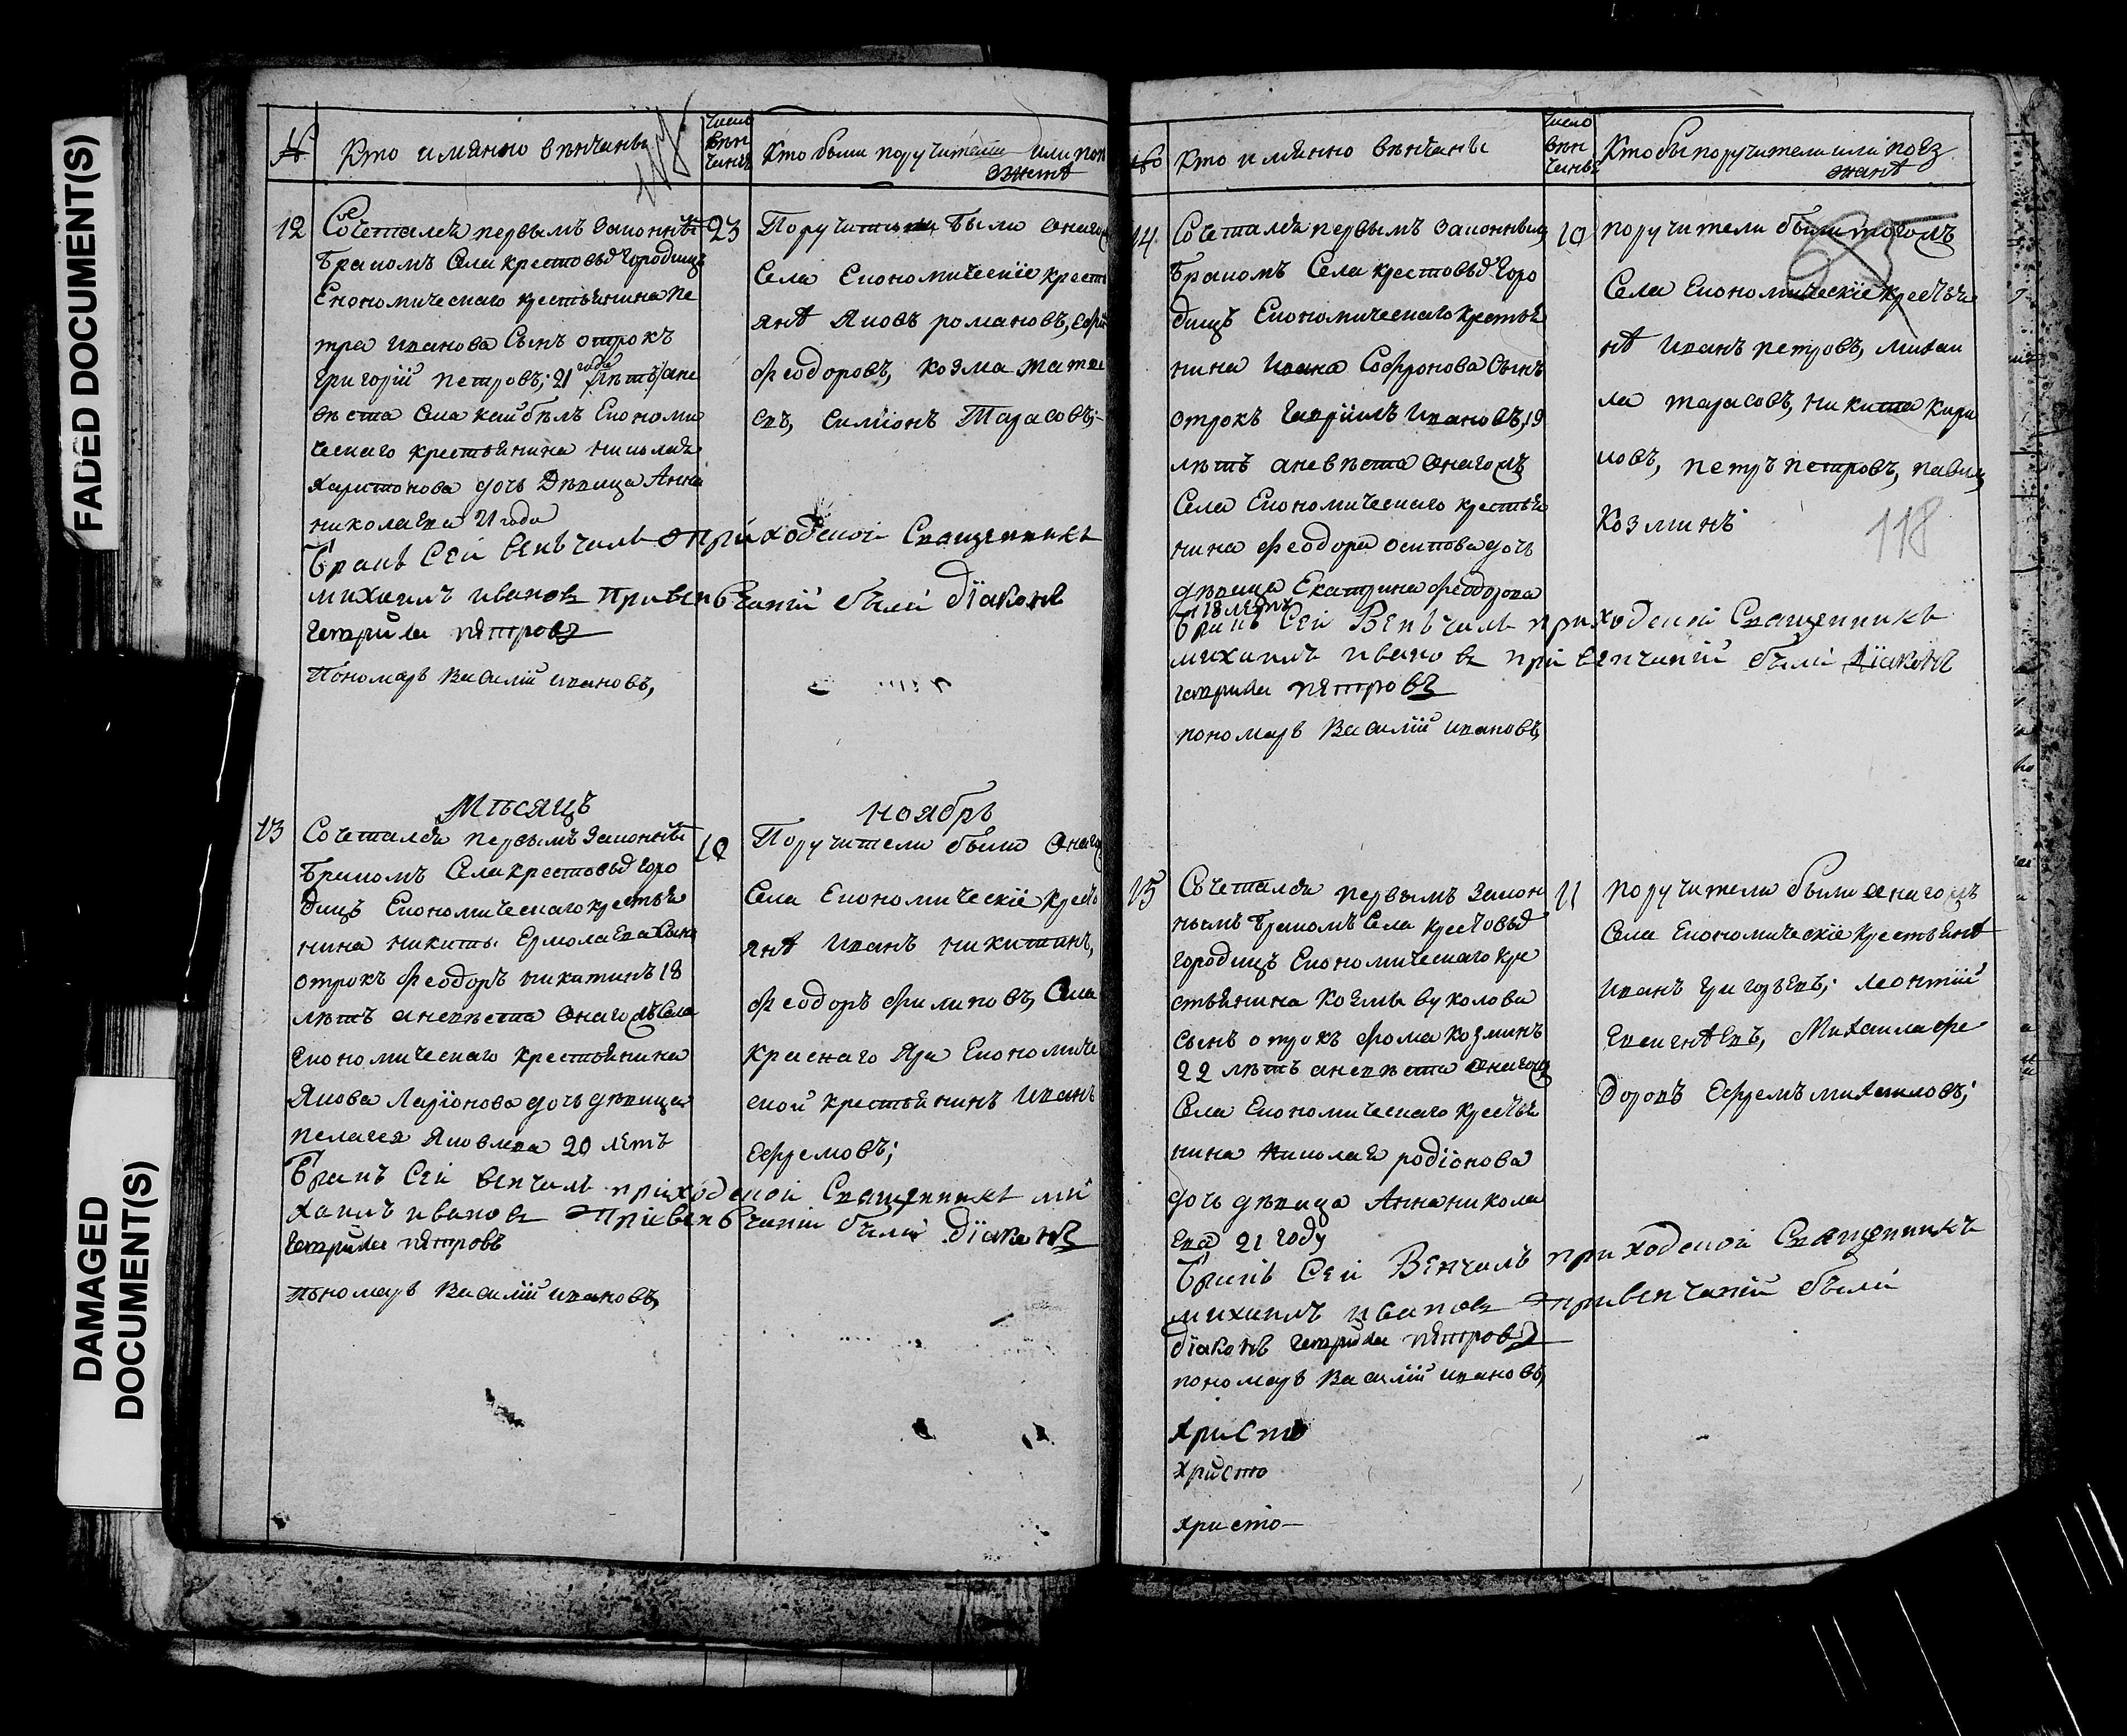 FADED DOCUMENT(S)
DAMAGED
DOCUMENT(S)
№
Кто имянно вѣнчаны
число
вѣн
чаныхъ
Кто были поручители или поѣ
зжанѣ
12
Сочетался первымъ законнымъ
бракомъ Села крестовыхъ Городищъ
Економическаго крестьянина пе
тра иванова Сынъ отрокъ
григорій петровъ, 21 года, ане
вѣста Села Економи
ческаго крестьянина николая
Харитонова дочь Дѣвица Анна
николаева 21 года
Бракъ Сей венчалъ приходской Священникъ
михаилъ ивановъ при венчаніи были діаконъ
гаврила пѣтровъ
Пономарь Василій ивановъ,
23
Поручители были онагожъ
Села Економическіе кресть
янѣ Яковъ романовъ,
феодоровъ, козма матве
евъ, Симіонъ Тарасовъ;
Мѣсяцъ
ноябрь
13
Сочетался первымъ Законнымъ
бракомъ Села крестовыхъ горо
дищъ Економическаго крестья
нина никиты Ермолаева Сынъ
отрокъ феодоръ никитинъ 18
лѣтъ аневѣста онагожъ Села
Економическаго крестьянина
Якова Ларіонова дочь дѣвица
пелагея Яковлева 20 лѣтъ
Бракъ Сей венчалъ приходской Священникъ ми
хаилъ ивановъ при венчаніи были діаконъ
гаврила пѣтровъ
пономарь Василій ивановъ,
10
Поручители были онагожъ
Села Економическіе кресть
янѣ Иванъ никитинъ,
феодоръ филиповъ, Села
краснаго Яра Економиче
ской крестьянинъ Иванъ
Ефремовъ;
№
Кто имянно вѣнчаны
число
вѣн
чаныхъ
Кто бы поручители или поѣз
жанѣ
14
Сочетался первымъ Законнымъ
бракомъ Села крестовыхъ горо
дищъ Економическаго крестья
нина Ивана Софронова Сынъ
отрокъ Гавріилъ Ивановъ, 19
лѣтъ аневѣста онагожъ
Села Економическаго крестья
нина феодора осипова дочь
дѣвица Екатрина феодорова
18 лѣтъ
Бракъ Сей Венчалъ приходской Священникъ
михаилъ ивановъ при венчаніи были діаконъ
гаврила пѣтровъ
пономарь Василій ивановъ,
10
поручители были тогожъ
Села Економическіе крестья
нѣ иванъ петровъ, михаи
ла тарасовъ, никита кири
ловъ, петръ петровъ, павилъ
Козминъ
118
15
Сочетался первымъ Закон
нымъ бракомъ Села крестовыхъ
городищъ Економическаго кре
стьянина Козмы вуколова
сынъ отрокъ фома козминъ
22 лѣтъ аневѣста онагожъ
Села Економическаго крестья
нина Николая родіонова
дочь дѣвица Анна никола
ева 21 году
Бракъ Сей Венчалъ приходской Священникъ
михаилъ ивановъ при венчаніи были
діаконъ гаврила пѣтровъ
пономарь Василій ивановъ,
11
поручители были онагожъ
Села Економическіе крестьянѣ
иванъ григорьевъ, леонтій
Евсигнѣевъ, Михаила фе
доровъ Ефремъ михаиловъ;
христо
христо
христо